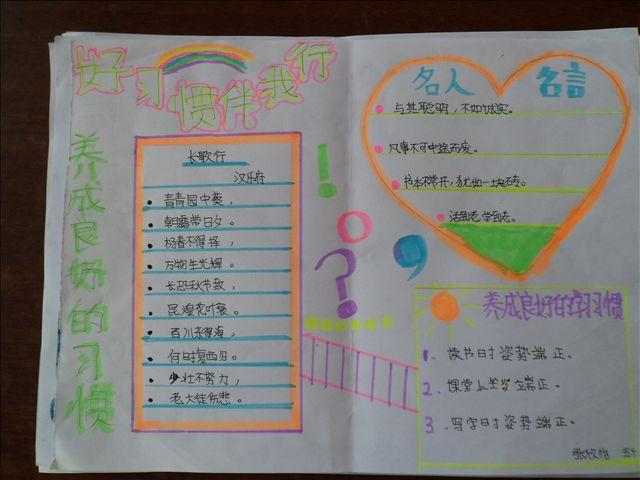 好习惯伴我行
养成良好的习惯
长歌行
汉乐府
青青园中葵，
朝露常日夕。
杨春不得择，
万物生光辉。
长恐秋节致，
昆煌花叶衰。
百川东得海，
何时复西归。
少壮不努力，
老大徒伤悲。
！
？
名人 名言
与其聪明，不如诚实。
凡事不可中途而废。
书本不常开，犹如一块砖。
活到老，学到老。
养成良好的学习惯
1、读书时姿势端正。
2、课堂上坐姿端正。
3、写字时姿势端正。